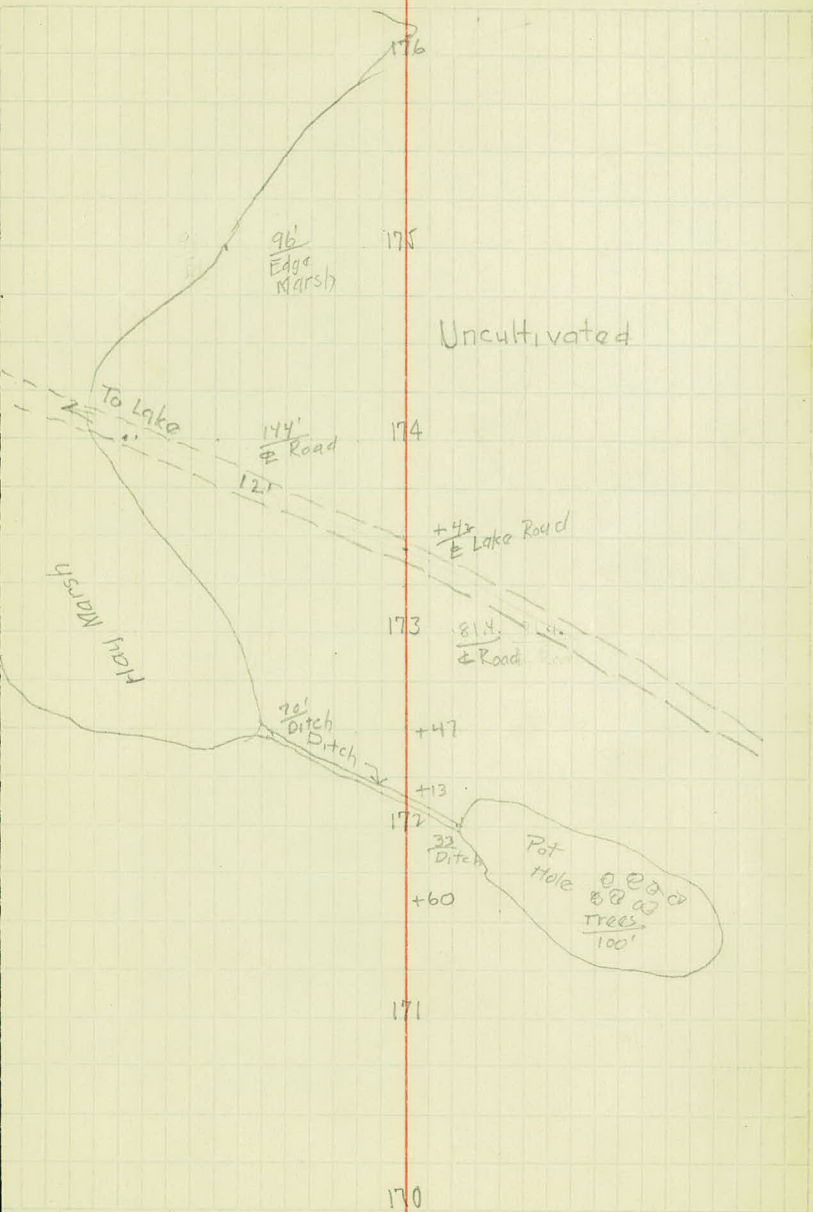 176
175
96'
Edge
Marsh
Uncultivated
To Lake
174
144'
℄ Road
12'
℄ Lake Road
Hay Marsh
173
81.4
℄ Road
70'
Ditch
Ditch
+47
+13
172
33
Ditch
Pot
Hole
+60
Trees
100'
171
170